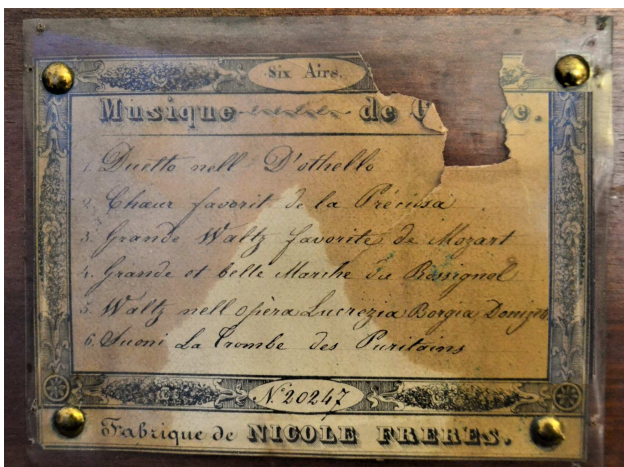 Six Airs.
Musique de
1. Duetto nell D'othello
2. Chœur favorit de la Préciosa
3. Grande Waltz favorite de Mozart
4. Grande et belle Marche du Rossignol
5. Waltz nell opèra Lucrezia Borgia
6. Suoni La Trombe des Puritains
N° 20247
Fabrique de NICOLE FRERES.